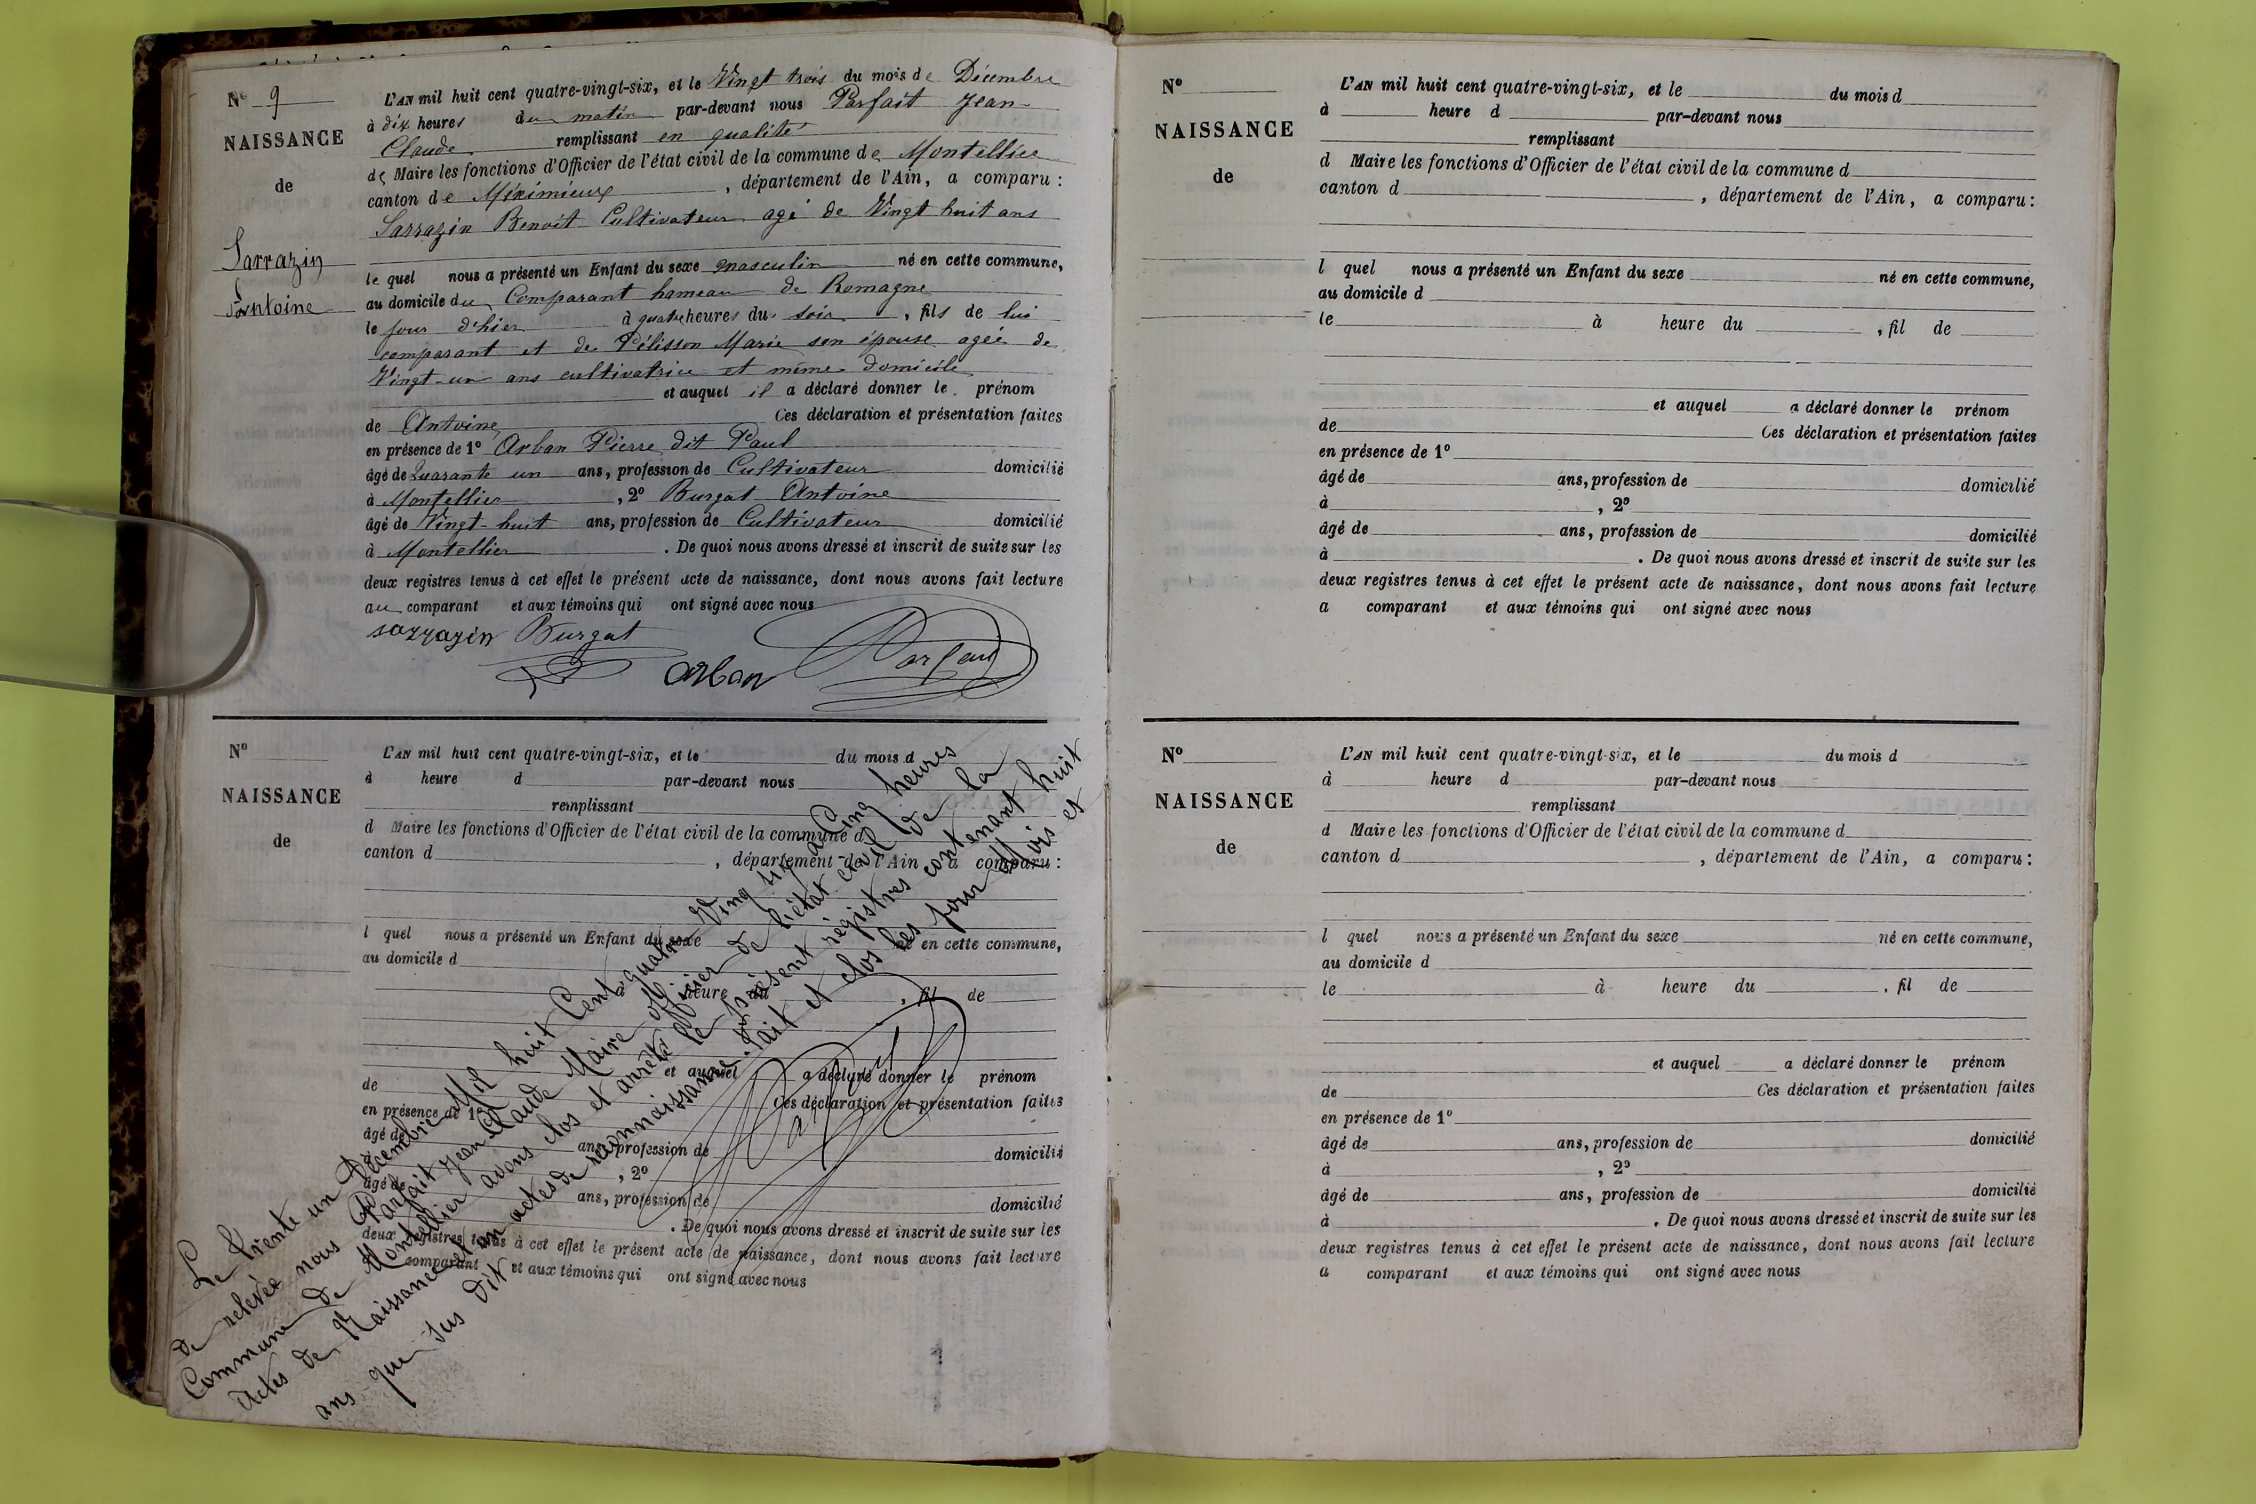 N° 9
NAISSANCE
de
Sarrazin
Antoine
L'AN mil huit cent quatre-vingt-six, et le Vingt trois du mois de Décembre
à dix heures du matin par-devant nous Parfait Jean
Claude remplissant en qualité
de Maire les fonctions d'Officier de l'état civil de la commune de Montellier
canton de Méximieux, département de l'Ain, a comparu :
Sarrazin Benoit Cultivateur agé de Vingt huit ans
le quel nous a présenté un Enfant du sexe masculin né en cette commune,
au domicile du Comparant hameau de Romagne
le jour d'hier à quatre heures du soir, fils de lui
comparant et de Pélisson Marie son épouse agée de
Vingt-un ans cultivatrice et même domicile
et auquel il a déclaré donner le prénom
de Antoine Ces déclaration et présentation faites
en présence de 1° Arban Pierre dit Paul
âgé de Quarante un ans, profession de Cultivateur domicilié
à Montellier, 2° Burgat Antoine
âgé de Vingt-huit ans, profession de Cultivateur domicilié
à Montellier. De quoi nous avons dressé et inscrit de suite sur les
deux registres tenus à cet effet le présent acte de naissance, dont nous avons fait lecture
au comparant et aux témoins qui ont signé avec nous
sarrazin Burgat
arban Parfait
N°
NAISSANCE
de
L'AN mil huit cent quatre-vingt-six, et le du mois d
à heure d par-devant nous
remplissant
d Maire les fonctions d'Officier de l'état civil de la commune d
canton d , département de l'Ain, a comparu :
l quel nous a présenté un Enfant du sexe né en cette commune,
au domicile d
à heure du , fil de
et auquel a déclaré donner le prénom
de Ces déclaration et présentation faites
en présence de 1°
âgé de ans, profession de domicilié
à , 2°
âgé de ans, profession de domicilié
. De quoi nous avons dressé et inscrit de suite sur les
deux registres tenus à cet effet le présent acte de naissance, dont nous avons fait lecture
comparant et aux témoins qui ont signé avec nous
Le trente un Décembre Mil huit Cent quatre Ving six, a Cinq heures
de relevée nous Parfait Jean Claude Maire officier de l'état civil de la
Commune de Montellier avons clos et arrêté le présent régistres contenant huit
Actes de Naissance et un actes de reconnaissance. Fait et clos les jour Mois et
ans que sus dit
Parfait
N°
NAISSANCE
de
L'AN mil huit cent quatre-vingt-six, et le du mois d
à heure d par-devant nous
remplissant
d Maire les fonctions d'Officier de l'état civil de la commune d
canton d , département de l'Ain, a comparu :
l quel nous a présenté un Enfant du sexe né en cette commune,
au domicile d
le à heure du , fil de
et auquel a déclaré donner le prénom
de Ces déclaration et présentation faites
en présence de 1°
âgé de ans, profession de domicilié
à , 2°
âgé de ans, profession de domicilié
à . De quoi nous avons dressé et inscrit de suite sur les
deux registres tenus à cet effet le présent acte de naissance, dont nous avons fait lecture
a comparant et aux témoins qui ont signé avec nous
N°
NAISSANCE
de
L'AN mil huit cent quatre-vingt-six, et le du mois d
à heure d par-devant nous
remplissant
d Maire les fonctions d'Officier de l'état civil de la commune d
canton d , département de l'Ain, a comparu :
l quel nous a présenté un Enfant du sexe né en cette commune,
au domicile d
le à heure du , fil de
et auquel a déclaré donner le prénom
de Ces déclaration et présentation faites
en présence de 1°
âgé de ans, profession de domicilié
à , 2°
âgé de ans, profession de domicilié
à . De quoi nous avons dressé et inscrit de suite sur les
deux registres tenus à cet effet le présent acte de naissance, dont nous avons fait lecture
a comparant et aux témoins qui ont signé avec nous